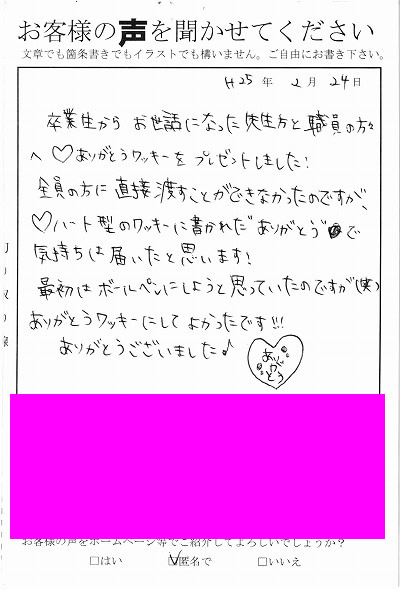 お客様の声を聞かせてください
文章でも箇条書きでもイラストでも構いません。ご自由にお書き下さい。
H25年 2月 24日
卒業生から お世話になった先生方と職員の方々
へ ♡ありがとうクッキーを プレゼントしました!
全員の方に 直接渡すことができなかったのですが、
♡ハート型のクッキーに書かれた“ありがとう”で
気持ちは届いたと思います!
最初はボールペンにしようと思っていたのですが(笑)
ありがとうクッキーにして よかったです!!!
ありがとうございました♪
ありがとう
お客様の声をホームページ等でご紹介してよろしいでしょうか?
□はい ☑匿名で □いいえ